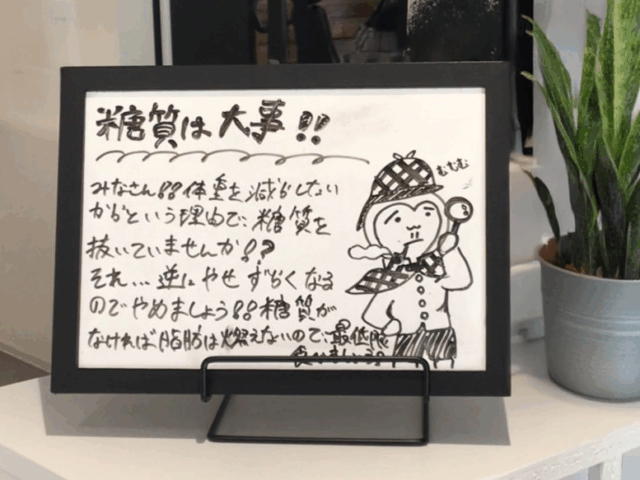 糖質は大事!!
みなさん!!体重を減らしたい
からという理由で、糖質を
抜いていませんか!?
それ...逆にやせずらくなる
のでやめましょう!!糖質が
なければ脂肪は燃えないので、最低限
食べましょう!!
むむむ